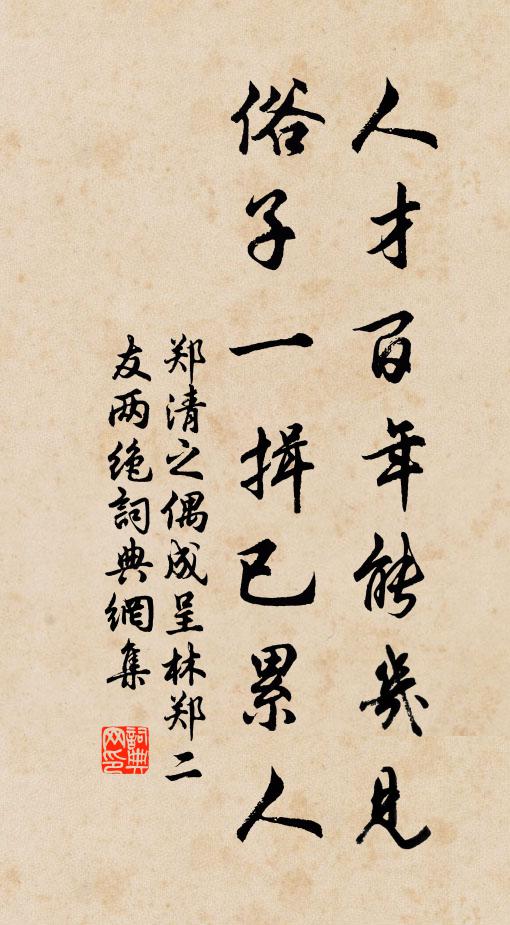 人才百年能几见
俗子一揖已累人
郑清之偶成呈林郑二
友两绝詞典網集
詞典
网印